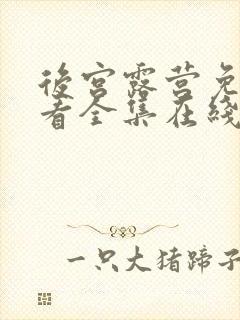 後宫露营免
看全集在线
一只大猪蹄子